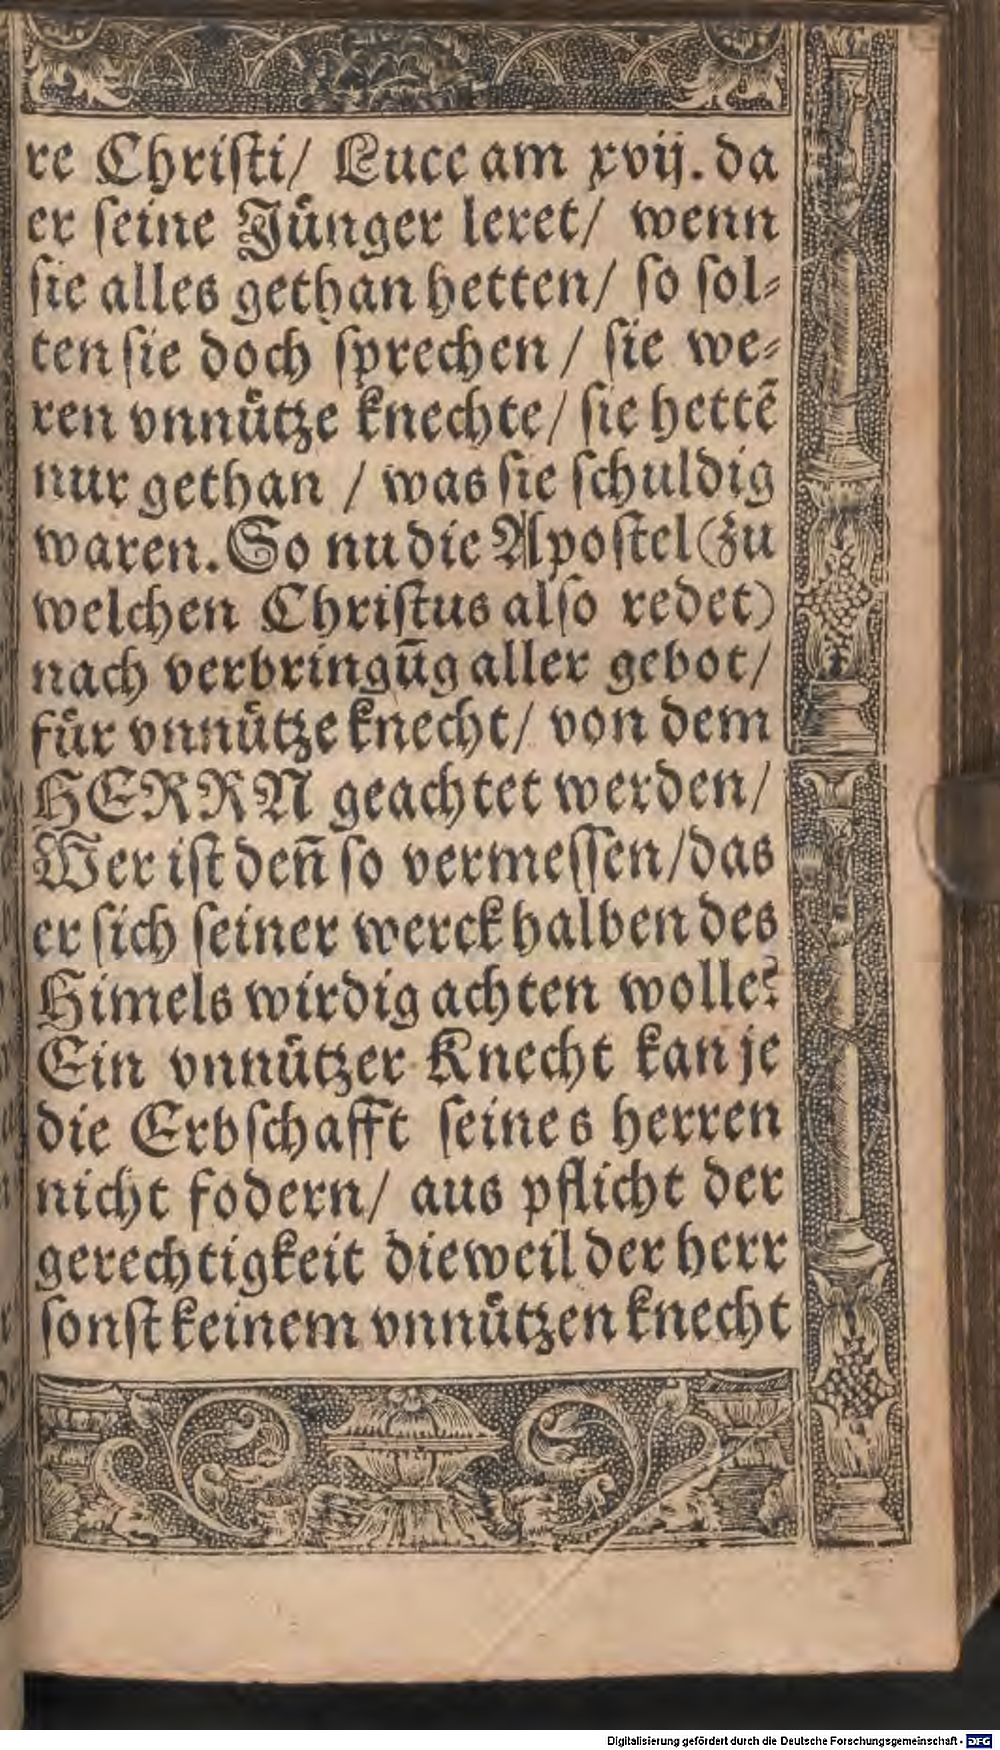 re Chriſti/ Luce am xvij. da
er ſeine Jünger leret/ wenn
ſie alles gethan hetten/ ſo ſol⸗
ten ſie doch ſprechen / ſie we⸗
ren vnnuͤtze knechte/ ſie hettẽ
nur gethan / was ſie ſchuldig
waren. So nu die Apoſtel (zu
welchen Chriſtus alſo redet)
nach verbringũg aller gebot/
fuͤr vnnuͤtze knecht/ von dem
HERRN geachtet werden/
Wer iſt deñ ſo vermeſſen/das
er ſich ſeiner werck halben des
Himels wirdig achten wolle?
Ein vnnuͤtzer Knecht kan je
die Erbſchafft ſeines herren
nicht fodern/ aus pflicht der
gerechtigkeit dieweil der herr
ſonſt keinem vnnuͤtzen knecht
Digitalisierung gefördert durch die Deutsche Forschungsgemeinschaft - DFG